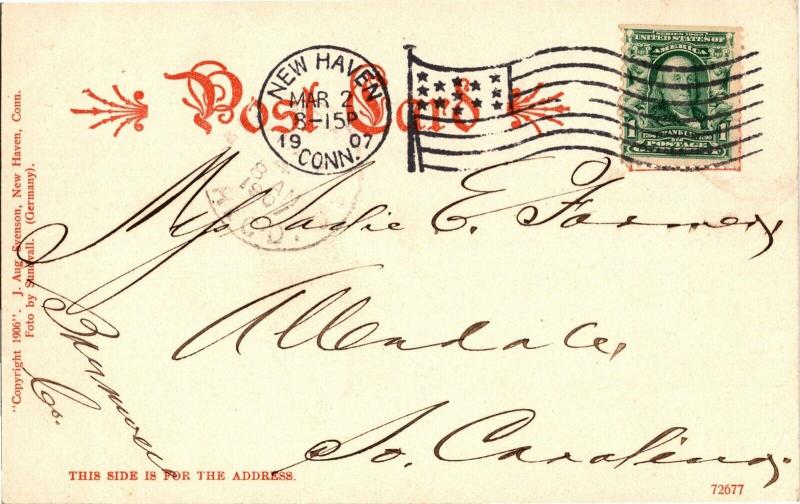 Post Card
NEW HAVEN
MAR 2
8-15P
1907
CONN.
SERIES 1902
UNITED STATES OF
AMERICA
FRANKLIN
1 POSTAGE 1
8 AM
190
REC'D.
Sadie E. Farmer,
Allendale,
So. Carolina.
Co.
"Copyright 1906". J. Aug. Svenson, New Haven, Conn.
Foto by Sundvall. (Germany).
THIS SIDE IS FOR THE ADDRESS.
72677